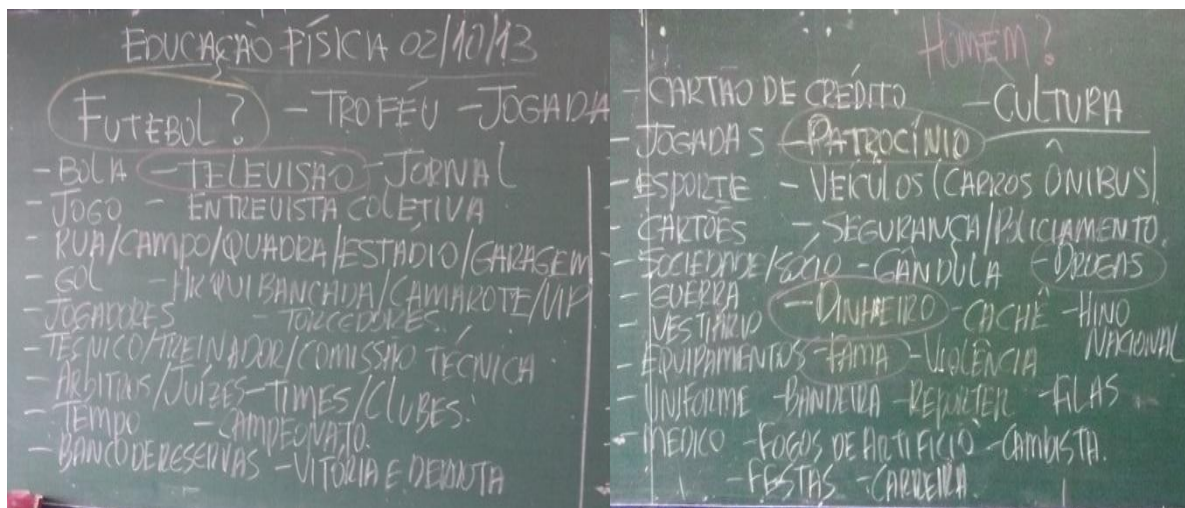 EDUCAÇÃO FÍSICA 02/10/13
FUTEBOL? - TROFÉU - JOGADA
- BOLA - TELEVISÃO - JORNAL
- JOGO - ENTREVISTA COLETIVA
- RUA/CAMPO/QUADRA/ESTÁDIO/GARAGEM
- GOL - ARQUIBANCADA/CAMAROTE/VIP
- JOGADORES - TORCEDORES.
- TÉCNICO/TREINADOR/COMISSÃO TÉCNICA
- ÁRBITROS/JUÍZES - TIMES/CLUBES.
- TEMPO - CAMPEONATO.
- BANCO DE RESERVAS - VITÓRIA E DERROTA
HOMEM?
- CARTÃO DE CRÉDITO - CULTURA
- JOGADAS - PATROCÍNIO
- ESPORTE - VEÍCULOS (CARROS ÔNIBUS)
- CARTÕES - SEGURANÇA/POLICIAMENTO.
- SOCIEDADE/SÓCIO - GÂNDULA - DROGAS
- GUERRA - DINHEIRO - CACHÊ - HINO NACIONAL
- VESTIÁRIO
- EQUIPAMENTOS - FAMA - VIOLÊNCIA
- UNIFORME - BANDEIRA - REPÓRTER - FILAS
- MÉDICO - FOGOS DE ARTIFÍCIO - CAMBISTA.
- FESTAS - CARREIRA.